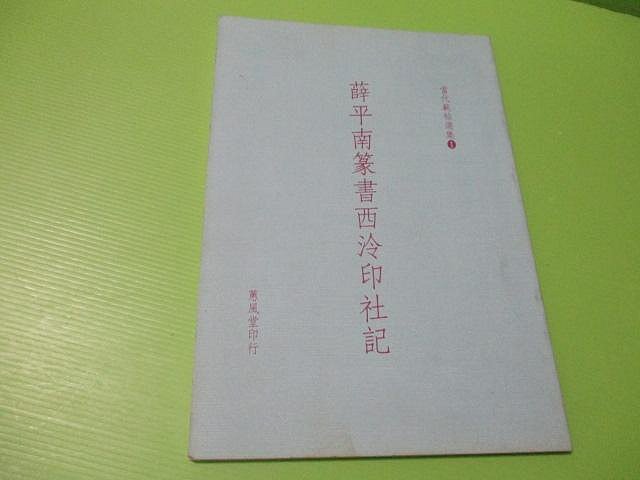 當代範帖選集❶
薛平南篆書西泠印社記
蕙風堂印行